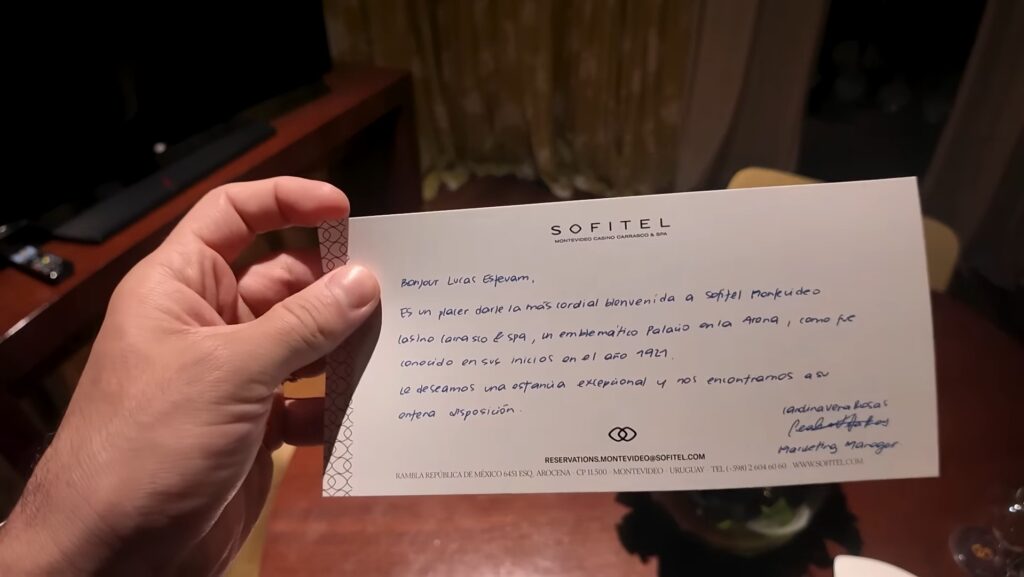 SOFITEL
MONTEVIDEO CASINO CARRASCO & SPA
Bonjour Lucas Estevam,
Es un placer darle la más cordial bienvenida a Sofitel Montevideo
Casino Carrasco & Spa, un emblemático Palacio en la Arena, como fue
conocido en sus inicios en el año 1921.
Le deseamos una estancia excepcional y nos encontramos a su
entera disposición.
Rosas
Marketing Manager
RESERVATIONS.MONTEVIDEO@SOFITEL.COM
RAMBLA REPÚBLICA DE MÉXICO 6451 ESQ. AROCENA · CP 11.500 · MONTEVIDEO · URUGUAY · TEL (+598) 2 604 60 60 WWW.SOFITEL.COM